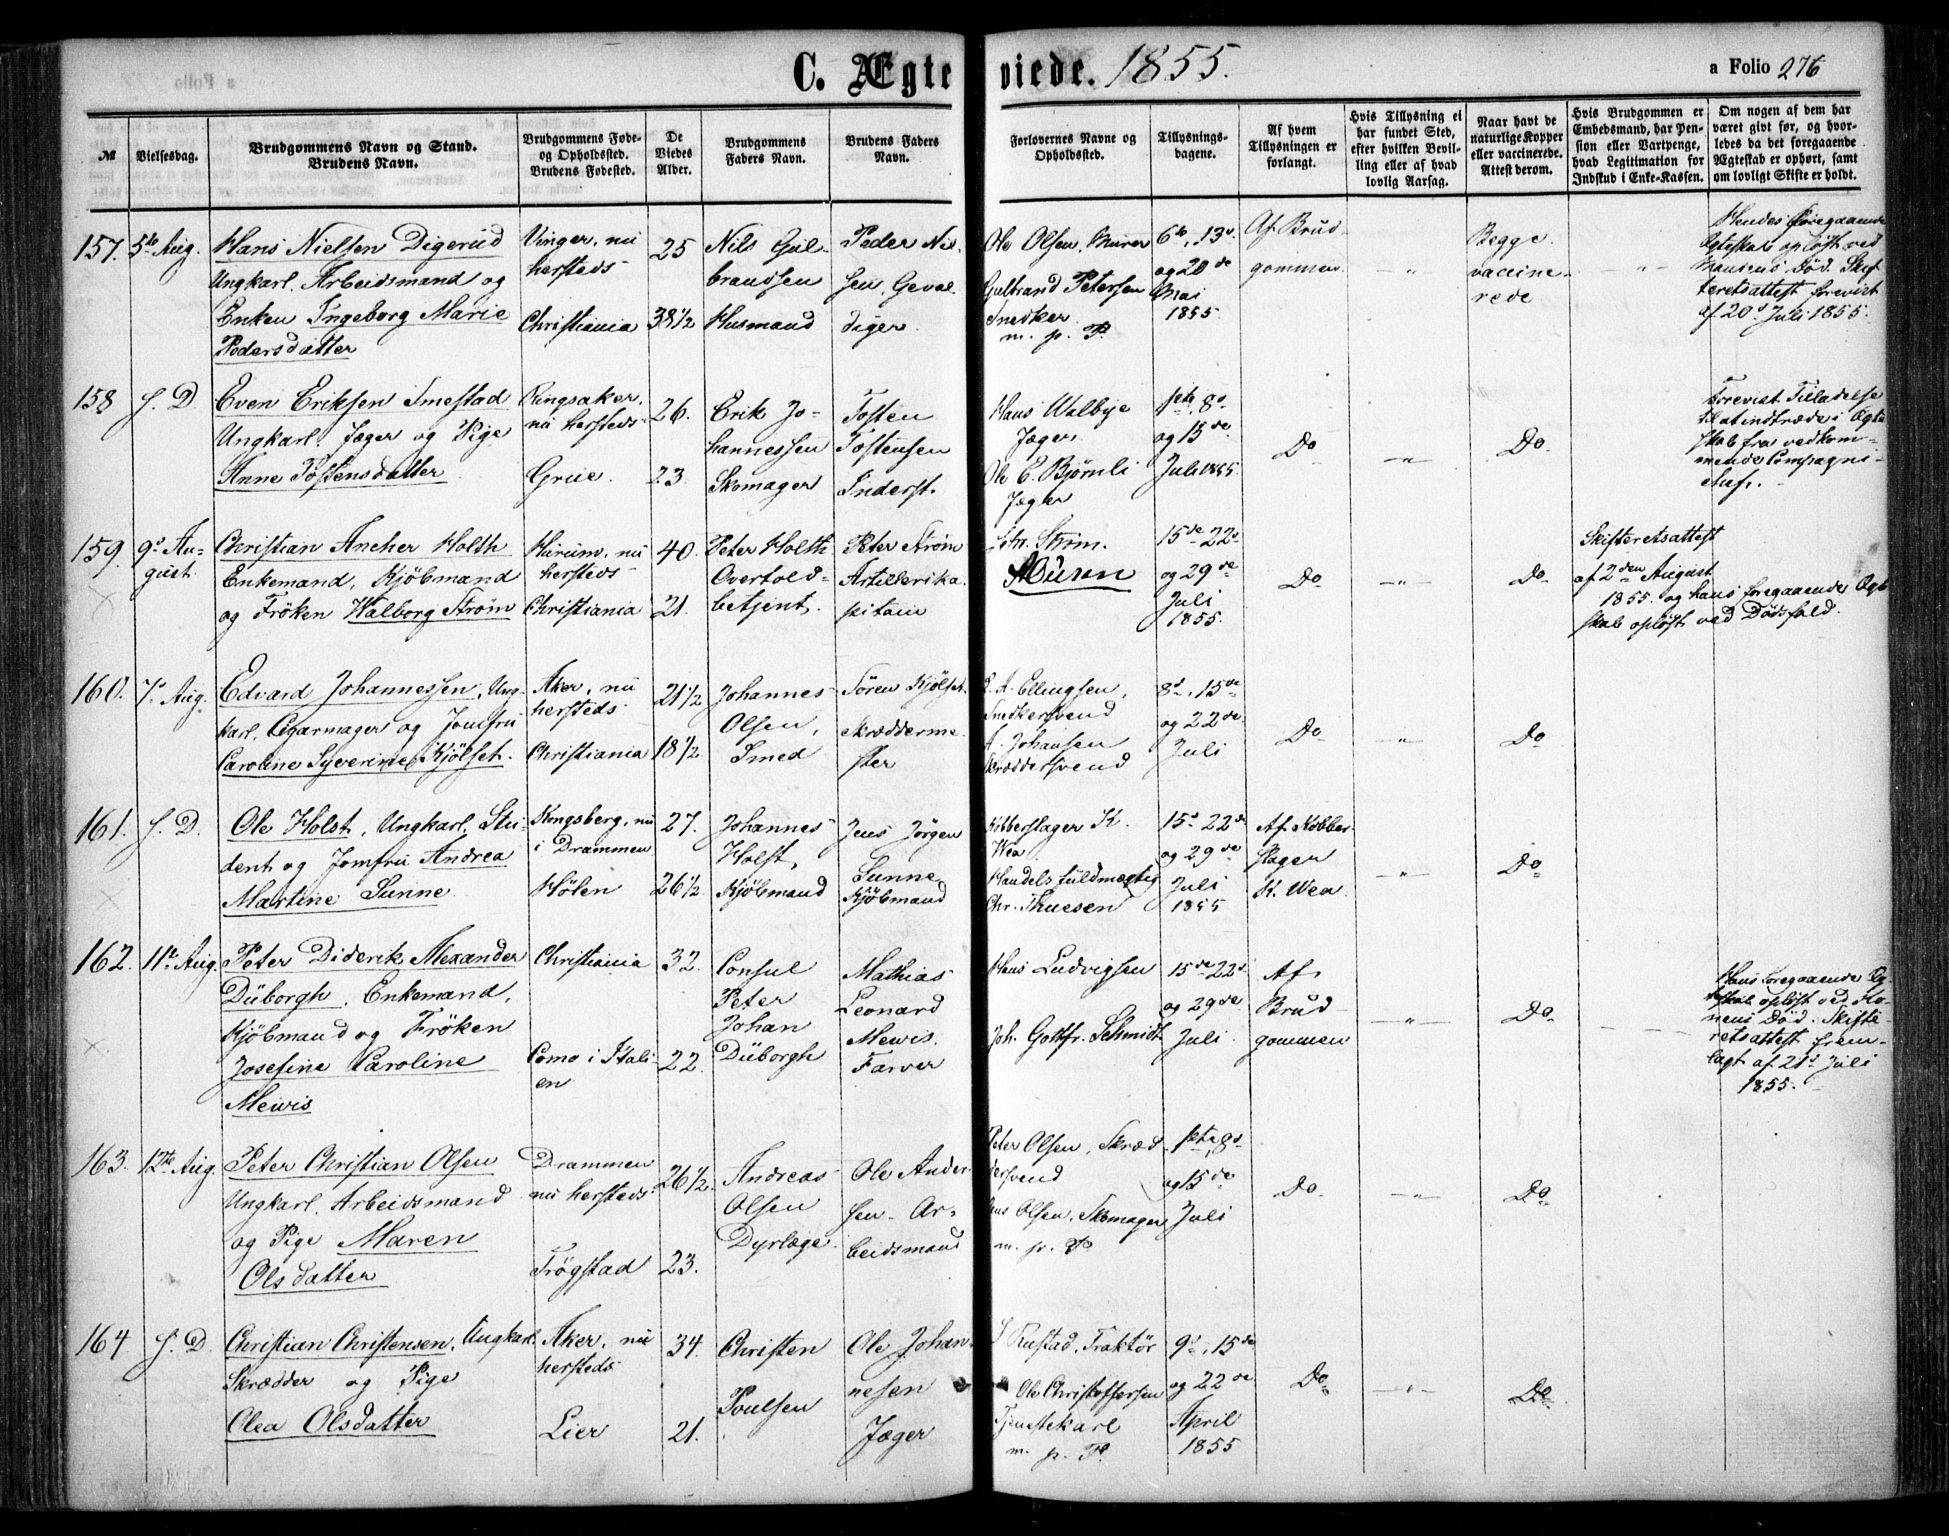 C. Ægteviede. 1855.
a Folio 276
№
Vielsesdag.
Brudgommens Navn og Stand.
Brudens Navn.
Brudgommens Føde-
og Opholdssted.
Brudens Fødested.
De
Viedes
Alder.
Brudgommens
Faders Navn.
Brudens Faders
Navn.
Forlovernes Navne og
Opholdssted.
Tillysnings-
dagene.
Af hvem
Tillysningen er
forlangt.
Hvis Tillysning ei
har fundet Sted,
efter hvilken Bevil-
ling eller af hvad
lovlig Aarsag.
Naar havt de
naturlige Kopper
eller vaccinerede.
Attest derom.
Hvis Brudgommen er
Embedsmand, har Pen-
sion eller Vartpenge,
hvad Legitimation for
Indskud i Enke-Kassen.
Om nogen af dem har
været givt før, og hvor-
ledes da det foregaaende
Ægteskab er ophørt, samt
om lovligt Skifte er holdt.
157. 5te Aug.
Hans Nielsen Digerud
Ungkarl, Arbeidsmand og
Enken Ingeborg Marie
Pedersdatter
Vinger, nu
hersteds
Christiania
25
38 1/2
Nils Gul-
brandsen
Husmand
Peder Nil-
sen, Geval-
diger
Ole Olsen, Murer
Gulbrand Petersen
Snedker
m. p. P.
6te, 13de
og 20de
Mai
1855.
Af Brud-
gommen
"
Begge
vaccine-
rede
"
Hendes foregaaende
Ægteskab opløst ved
Mandens Død. Skif-
teretsattest forevist
af 20de Juli 1855.
158 s. D.
Even Eriksen Smestad
Ungkarl, Jæger og Pige
Anne Tostensdatter
Ringsaker,
nu hersteds
Grue.
26.
23.
Erik Jo-
hannessen
Skomager
Tosten
Tostensen
Inderst.
Hans Walbye
Jæger.
Ole E. Bjørnli
Jæger
1ste, 8de
og 15de
Juli 1855.
Do
"
Do
Forevist Tilladelse
til at indtræde i Ægte-
skab fra vedkom-
mende Compagni-
chef.
159. 9de Au-
gust.
Christian Ancher Holth
Enkemand, Kjöbmand
og Fröken Walborg Strøm
Hurum, nu
hersteds
Christiania
40.
21.
Peter Holth
Overtold-
betjent.
Peter Strøm
Artillerika-
pitain
Strøm.
15de 22de
og 29de
Juli
1855.
Do
"
Do
Skifteretsattest
af 2den August
1855. og hans foregaaende Ægte-
skab opløst ved Dødsfald.
160. 7de Aug.
Edvard Johannessen, Ung-
karl, Cigarmager og Jomfru
Caroline Syverine Kjölset.
Aker, nu
hersteds
Christiania
21 1/2
18 1/2
Johannes
Olsen,
Smed
Sören Kjölset,
Skrædderme-
ster
A. Ellingsen,
Snedkersvend
A. Johansen
Skræddersvend
8de, 15de
og 22de
Juli
Do
"
Do
161. s. D.
Ole Holst, Ungkarl, Stu-
dent og Jomfru Andrea
Martine Sunne
Kongsberg, nu
i Drammen
Hölen
27.
26 1/2
Johannes
Holst,
Kjöbmand
Jens Jörgen
Sunne
Kjöbmand
Kobberslager K.
Wea
Handelsfuldmægtig
Chr. Thuesen
15de 22de
og 29de
Juli
1855
Af Kobber-
slager
K. Wea.
"
Do
162. 11te Aug.
Peter Diderik Alexander
Düborgh, Enkemand,
Kjöbmand og Fröken
Josefine Caroline
Mewis
Christiania
Como i Itali-
en
32.
22.
Consul
Peter
Johan
Düborgh
Mathias
Leonard
Mewis.
Farver
Hans Ludvigsen
Joh. Gottfr. Schmidt
15de 22de
og 29de
Juli
Af
Brud-
gommen
"
Do
"
Hans foregaaende Æg-
teskab opløst ved Ko-
nens Død. Skifte-
retsattest frem-
lagt af 21de Juli
1855.
163. 12te Aug.
Peter Christian Olsen
Ungkarl, Arbeidsmand
og Pige Maren
Olsdatter
Drammen
nu hersteds
Trögstad
26 1/2.
23.
Andreas
Olsen
Dyrlæge
Ole Ander-
sen - Ar-
beidsmand
Peter Olsen, Skræd-
dersvend
Olsen, Skomager
m. p. P.
1ste, 8de
og 15de
Juli
Do
"
Do
164 s. D.
Christian Christensen, Ungkarl,
Skrædder og Pige
Olea Olsdatter
Aker, nu
hersteds
Lier
34.
21.
Christen
Poulsen
Ole Johan-
nesen
Jæger
Rustad, Traktør
Ole Christoffersen
Tjenstekarl
m. p. P.
9de, 15de
og 22de
April
1855
Do
"
Do